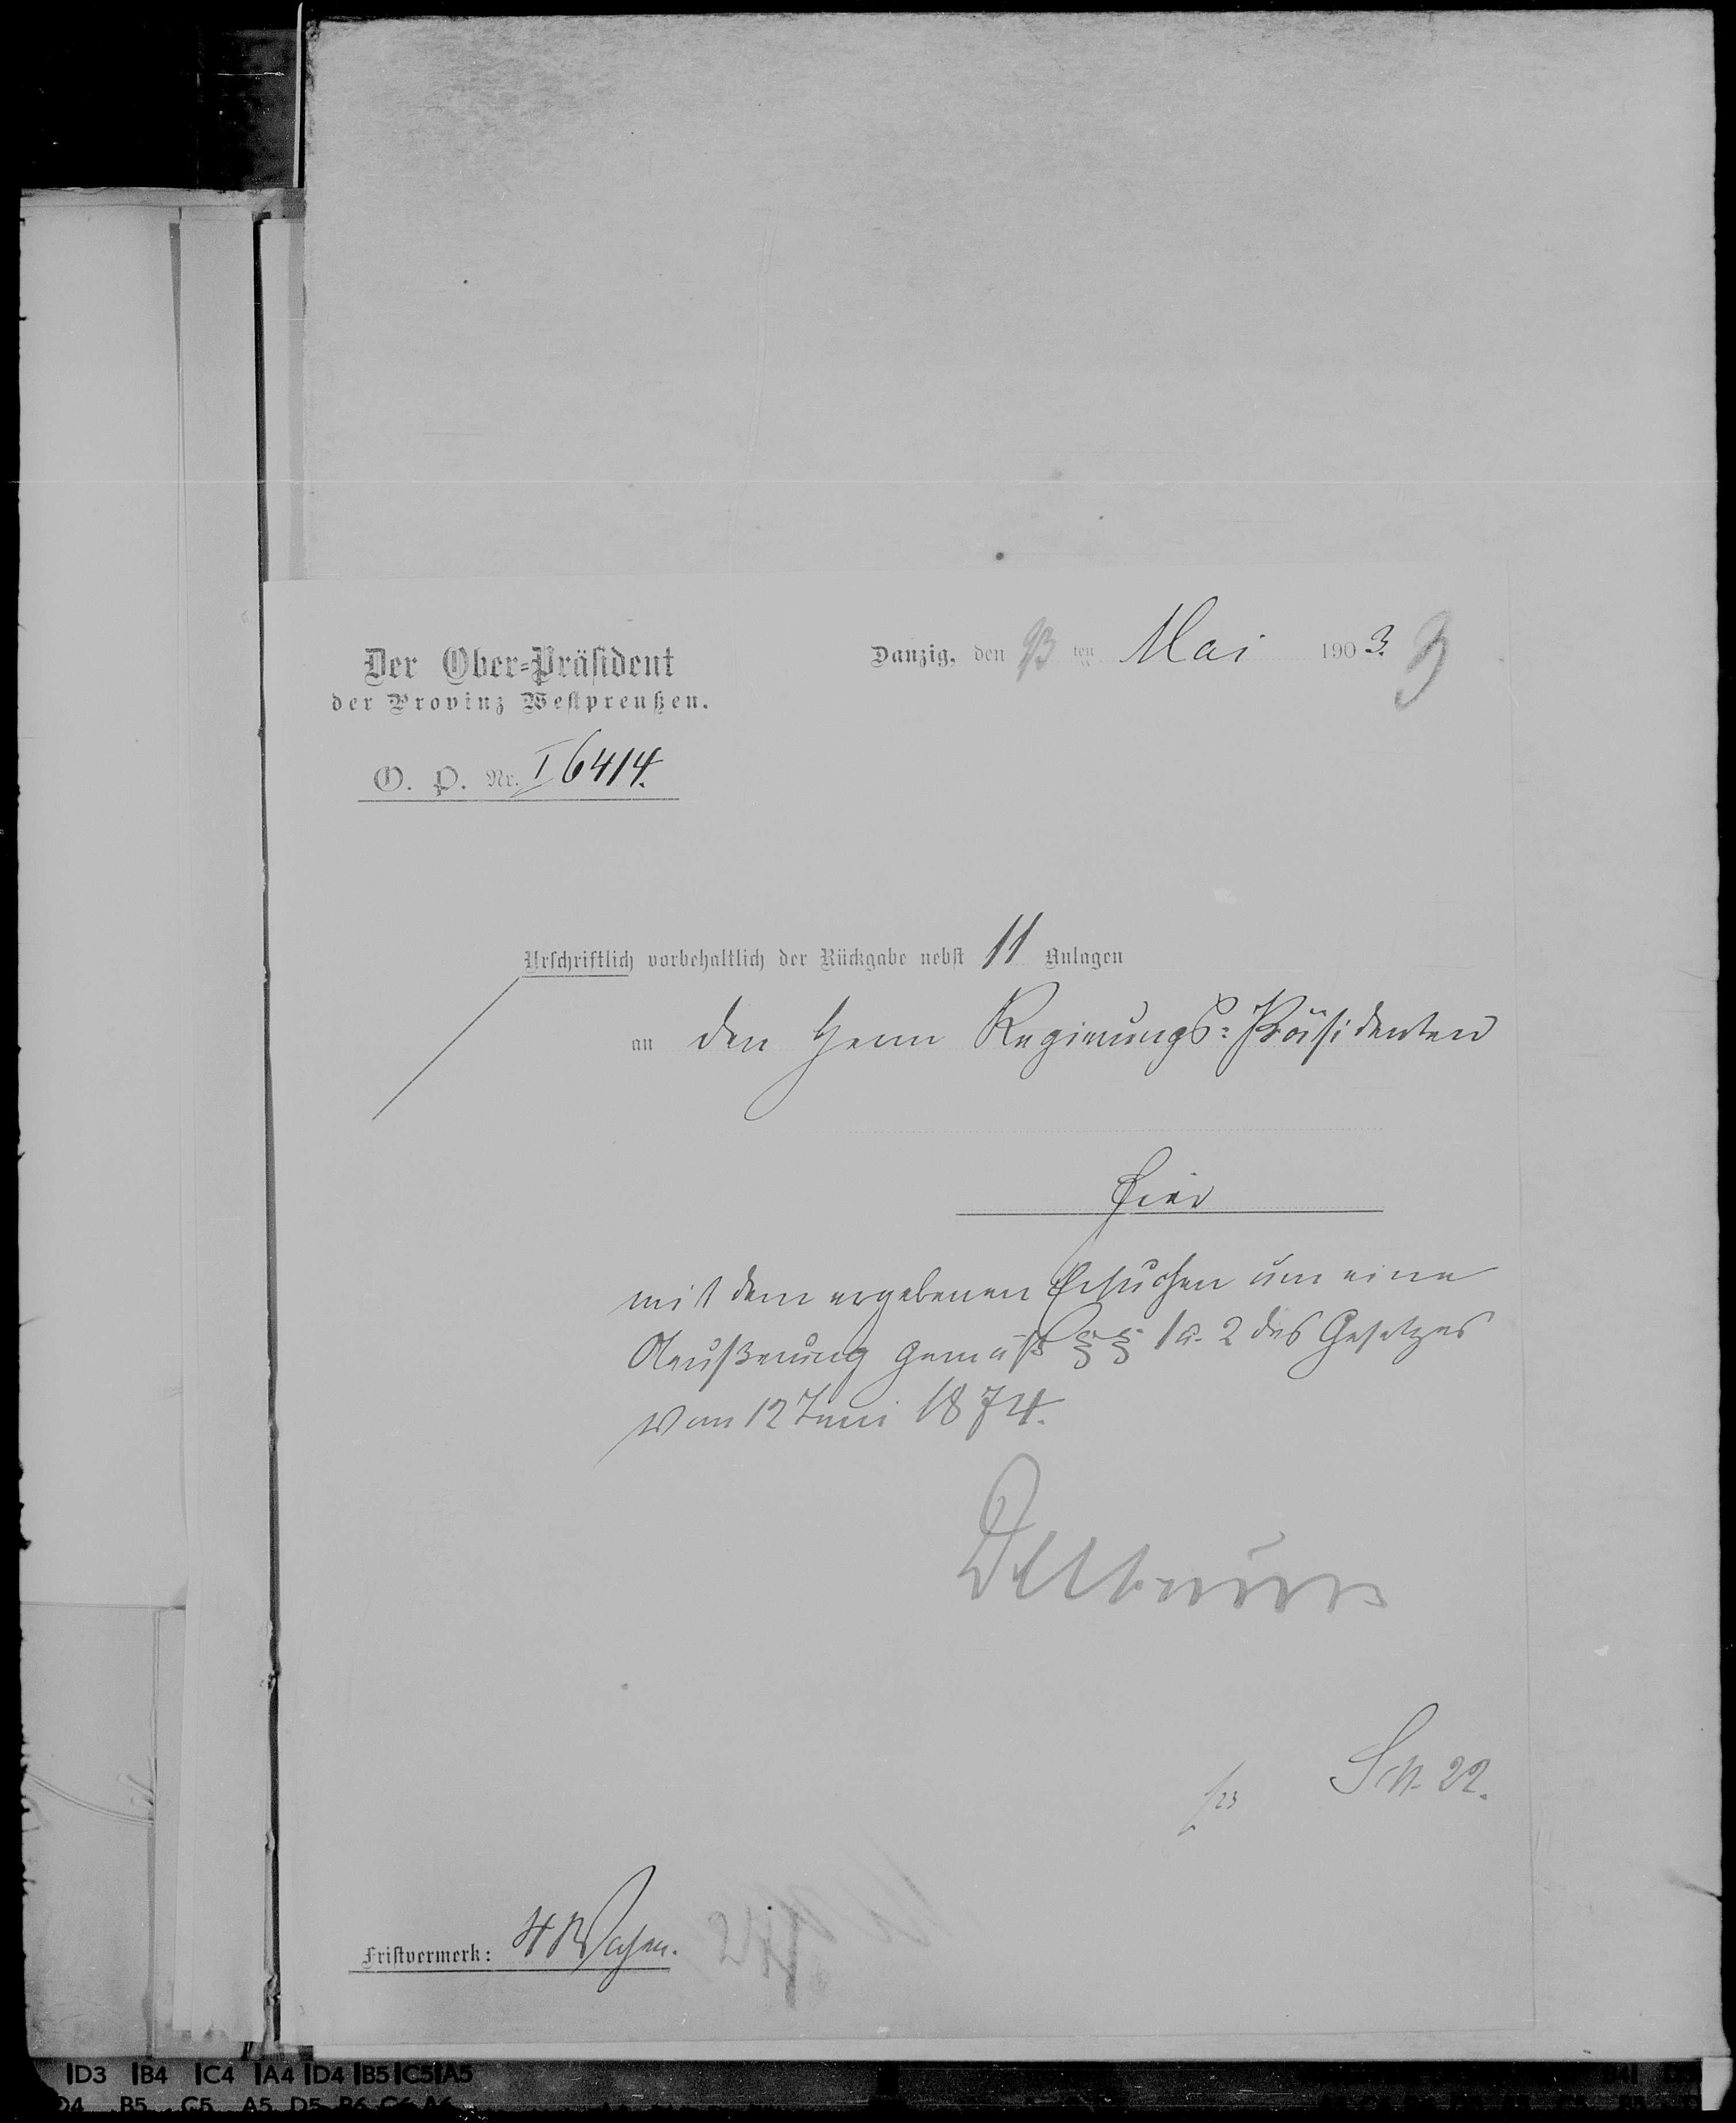 Danzig, den 23 ten Mai 1903.
Der Ober-Präsident
der Provinz Westpreußen.
O. P. Nr. I 6414.
Urschriftlich vorbehaltlich der Rückgabe nebst 11 Anlagen
an den Herrn Regierungs-Präsidenten
hier
mit dem ergebenen Ersuchen um eine
Aeußerung gemäß §§ 1 u. 2 des Gesetzes
vom 12 Juni 1874.
Delbrück
22.
Fristvermerk: 4 Wochen.
D3 B4 C4 A4 D4 B5 C5 A5
D4 B5 C5 A5 D5 B6 C6 A6